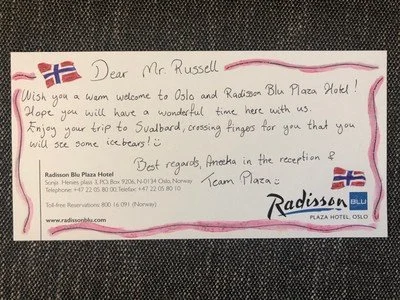 Dear Mr. Russell
Wish you a warm welcome to Oslo and Radisson Blu Plaza Hotel!
Hope you will have a wonderful time here with us.
Enjoy your trip to Svalbard, crossing fingers for you that you
will see some ice bears! :)
Best regards, Aneeka in the reception &
Team Plaza :)
Radisson Blu Plaza Hotel
Sonja Henies plass 3, P.O. Box 9206, N-0134 Oslo, Norway
Telephone: +47 22 05 80 00, Telefax: +47 22 05 80 10
Toll-free Reservations: 800 16 091 (Norway)
www.radissonblu.com
Radisson BLU
PLAZA HOTEL, OSLO